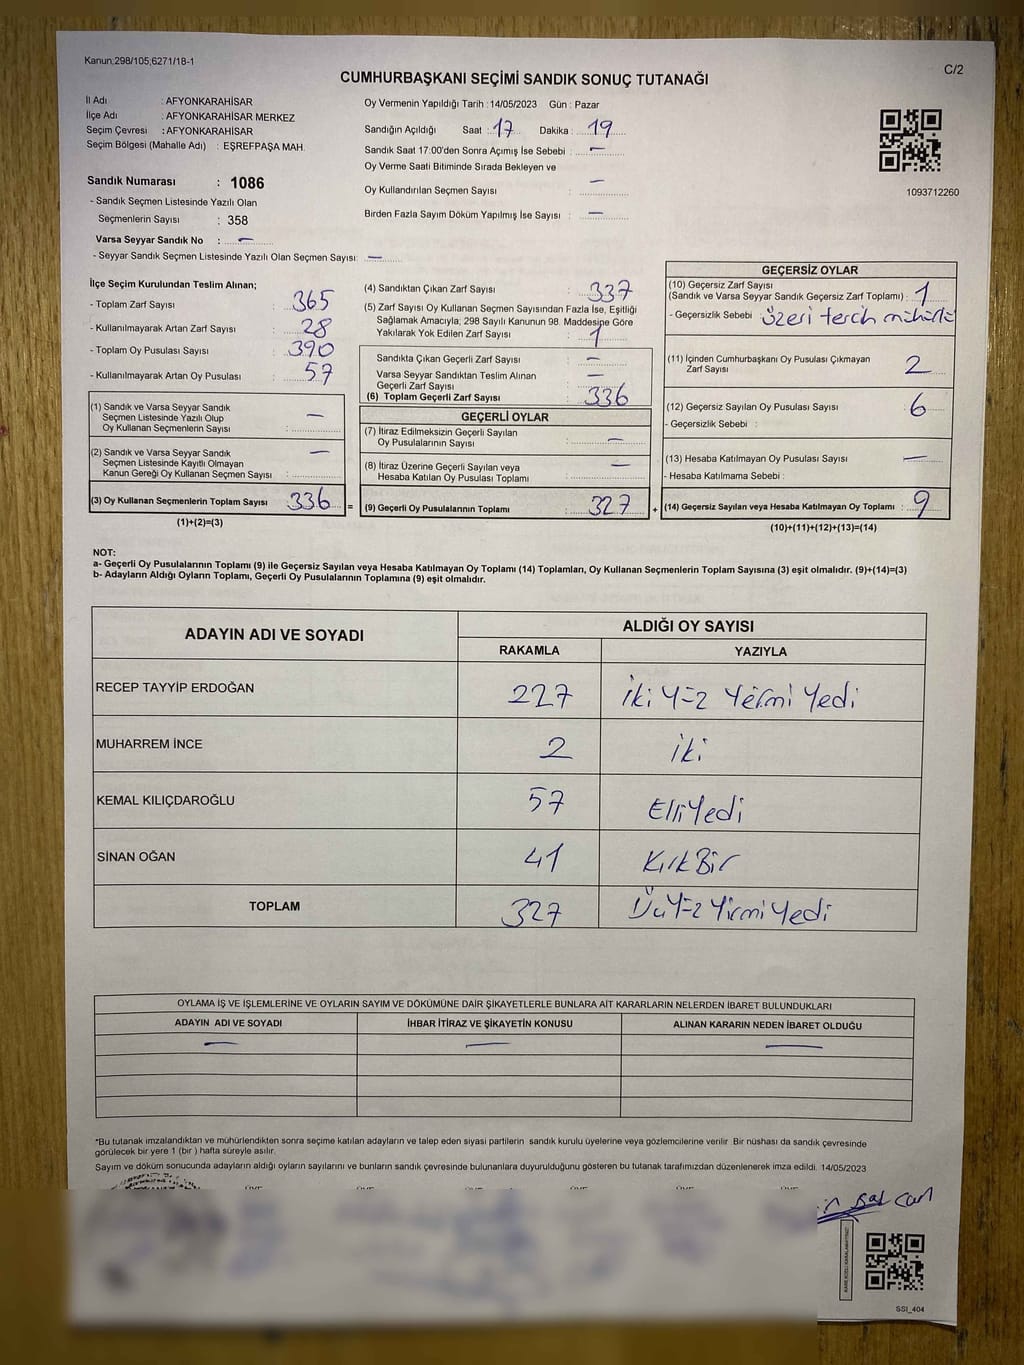 Kanun;298/105,6271/18-1
C/2
CUMHURBAŞKANI SEÇİMİ SANDIK SONUÇ TUTANAĞI
İl Adı : AFYONKARAHİSAR
İlçe Adı : AFYONKARAHİSAR MERKEZ
Seçim Çevresi : AFYONKARAHİSAR
Seçim Bölgesi (Mahalle Adı) : EŞREFPAŞA MAH.
Sandık Numarası : 1086
- Sandık Seçmen Listesinde Yazılı Olan
Seçmenlerin Sayısı : 358
Varsa Seyyar Sandık No : —
- Seyyar Sandık Seçmen Listesinde Yazılı Olan Seçmen Sayısı: —
Oy Vermenin Yapıldığı Tarih : 14/05/2023 Gün : Pazar
Sandığın Açıldığı Saat : 17 Dakika : 19
Sandık Saat 17:00'den Sonra Açımış İse Sebebi : —
Oy Verme Saati Bitiminde Sırada Bekleyen ve
Oy Kullandırılan Seçmen Sayısı : —
Birden Fazla Sayım Döküm Yapılmış İse Sayısı : —
1093712260
İlçe Seçim Kurulundan Teslim Alınan;
- Toplam Zarf Sayısı : 365
- Kullanılmayarak Artan Zarf Sayısı : 28
- Toplam Oy Pusulası Sayısı : 390
- Kullanılmayarak Artan Oy Pusulası : 57
(1) Sandık ve Varsa Seyyar Sandık
Seçmen Listesinde Yazılı Olup
Oy Kullanan Seçmenlerin Sayısı : —
(2) Sandık ve Varsa Seyyar Sandık
Seçmen Listesinde Kayıtlı Olmayan
Kanun Gereği Oy Kullanan Seçmen Sayısı : —
(3) Oy Kullanan Seçmenlerin Toplam Sayısı 336 =
(1)+(2)=(3)
(4) Sandıktan Çıkan Zarf Sayısı : 337
(5) Zarf Sayısı Oy Kullanan Seçmen Sayısından Fazla İse, Eşitliği
Sağlamak Amacıyla; 298 Sayılı Kanunun 98. Maddesine Göre
Yakılarak Yok Edilen Zarf Sayısı : 1
Sandıkta Çıkan Geçerli Zarf Sayısı : —
Varsa Seyyar Sandıktan Teslim Alınan
Geçerli Zarf Sayısı : —
(6) Toplam Geçerli Zarf Sayısı : 336
GEÇERLİ OYLAR
(7) İtiraz Edilmeksizin Geçerli Sayılan
Oy Pusulalarının Sayısı : —
(8) İtiraz Üzerine Geçerli Sayılan veya
Hesaba Katılan Oy Pusulası Toplamı : —
(9) Geçerli Oy Pusulalarının Toplamı : 327 +
GEÇERSİZ OYLAR
(10) Geçersiz Zarf Sayısı
(Sandık ve Varsa Seyyar Sandık Geçersiz Zarf Toplamı) : 1
- Geçersizlik Sebebi : üzeri tercih mühürlü
(11) İçinden Cumhurbaşkanı Oy Pusulası Çıkmayan
Zarf Sayısı 2
(12) Geçersiz Sayılan Oy Pusulası Sayısı : 6
- Geçersizlik Sebebi :
(13) Hesaba Katılmayan Oy Pusulası Sayısı : —
- Hesaba Katılmama Sebebi :
(14) Geçersiz Sayılan veya Hesaba Katılmayan Oy Toplamı : 9
(10)+(11)+(12)+(13)=(14)
NOT:
a- Geçerli Oy Pusulalarının Toplamı (9) ile Geçersiz Sayılan veya Hesaba Katılmayan Oy Toplamı (14) Toplamları, Oy Kullanan Seçmenlerin Toplam Sayısına (3) eşit olmalıdır. (9)+(14)=(3)
b- Adayların Aldığı Oyların Toplamı, Geçerli Oy Pusulalarının Toplamına (9) eşit olmalıdır.
ADAYIN ADI VE SOYADI ALDIĞI OY SAYISI
RAKAMLA YAZIYLA
RECEP TAYYİP ERDOĞAN 227 iki Yüz Yirmi Yedi
MUHARREM İNCE 2 iki
KEMAL KILIÇDAROĞLU 57 Elli Yedi
SİNAN OĞAN 41 Kırk Bir
TOPLAM 327 Üç Yüz Yirmi Yedi
OYLAMA İŞ VE İŞLEMLERİNE VE OYLARIN SAYIM VE DÖKÜMÜNE DAİR ŞİKAYETLERLE BUNLARA AİT KARARLARIN NELERDEN İBARET BULUNDUKLARI
ADAYIN ADI VE SOYADI İHBAR İTİRAZ VE ŞİKAYETİN KONUSU ALINAN KARARIN NEDEN İBARET OLDUĞU
— — —
*Bu tutanak imzalandıktan ve mühürlendikten sonra seçime katılan adayların ve talep eden siyasi partilerin sandık kurulu üyelerine veya gözlemcilerine verilir Bir nüshası da sandık çevresinde
görülecek bir yere 1 (bir ) hafta süreyle asılır.
Sayım ve döküm sonucunda adayların aldığı oyların sayılarını ve bunların sandık çevresinde bulunanlara duyurulduğunu gösteren bu tutanak tarafımızdan düzenlenerek imza edildi. 14/05/2023
SSI_404